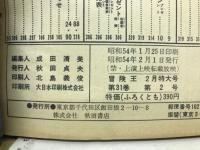 ゼント
24 88
編集人 成田清美
発行人 秋田貞夫
印刷人 北島義俊
印刷所 大日本印刷株式会社
昭和54年1月25日印刷
昭和54年2月1日発行
(禁・上演上映転載放映)
冒険王 2月特大号
第31巻 第2号
特価(ふろくとも)390円
●発行所●東京都千代田区飯田橋2-10-8
株式会社 秋田書店
郵便番号102